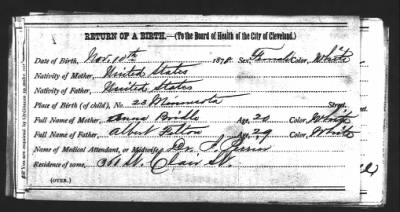 RETURN OF A BIRTH.—(To the Board of Health of the City of Cleveland.)
Date of Birth, Nov. 10th 1878. Sex, Female Color, White
Nativity of Mother, United States
Nativity of Father, United States
Place of Birth (of child), No. 23 Minnesota Street.
Full Name of Mother, Anna Age, 20 Color, White
Full Name of Father, Albert Age, 29 Color, White
Name of Medical Attendant, or Midwife, Dr.
Residence of same, St. Clair St.
(OVER.)